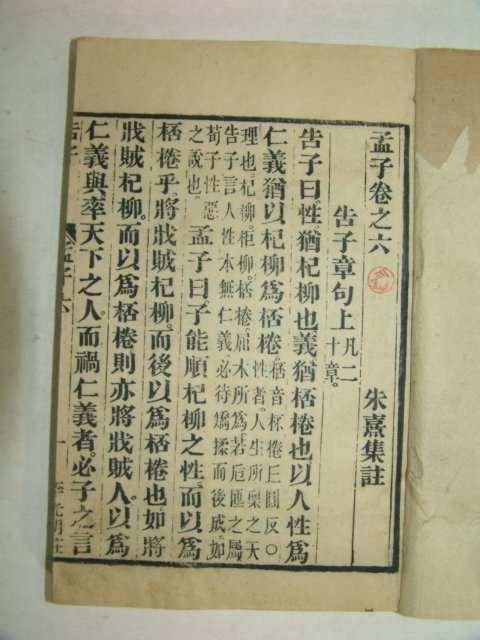 孟子卷之六
朱熹集註
告子章句上凡二十章。
告子曰。性猶杞柳也義猶桮棬也以人性爲
仁義猶以杞柳爲桮棬。桮音杯棬丘圓反〇性者。人生所稟之天
理也。杞柳。柜柳。桮棬。屈木所爲。若卮匜之屬
告子言人性本無仁義必待矯揉而後成。如
荀子性惡
之說也。孟子曰。子能順杞柳之性。而以爲
桮棬乎將戕賊杞柳。而後以爲桮棬也。如將
戕賊杞柳。而以爲桮棬則亦將戕賊人。以爲
仁義與率天下之人。而禍仁義者。必子之言
告子
一
李光明莊